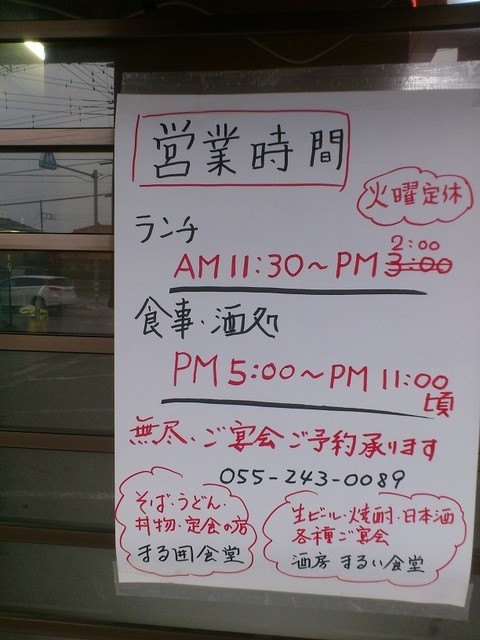 営業時間
火曜定休
ランチ
2:00
AM 11:30～PM 3:00
食事・酒処
PM 5:00～PM 11:00
頃
無尽・ご宴会ご予約承ります
055-243-0089
そば・うどん・
丼物・定食の店
まる囲食堂
生ビール・焼酎・日本酒
各種ご宴会
酒房 まるい食堂